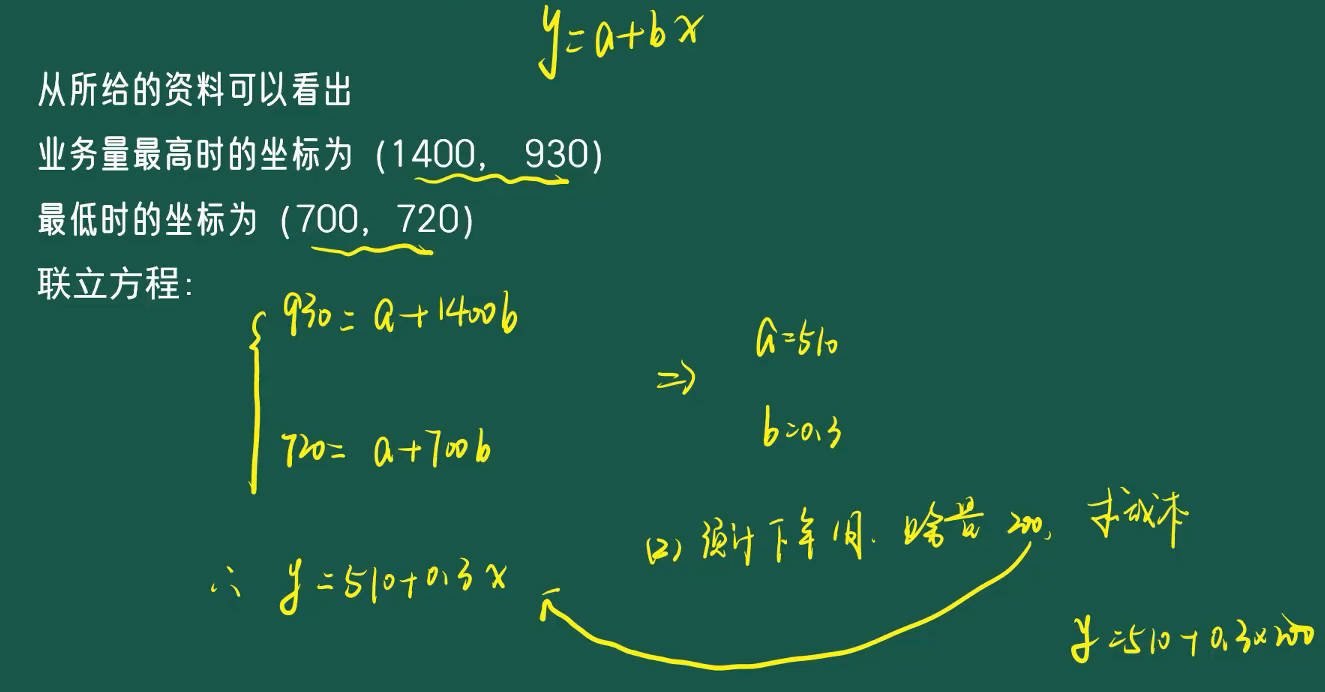 y=a+bx
从所给的资料可以看出
业务量最高时的坐标为（1400， 930）
最低时的坐标为（700，720）
联立方程：
930=a+1400b
720=a+700b
⇒
a=510
b=0.3
(2) 预计下年1月. 销量 200, 求成本
∴ y=510+0.3x
y=510+0.3×200